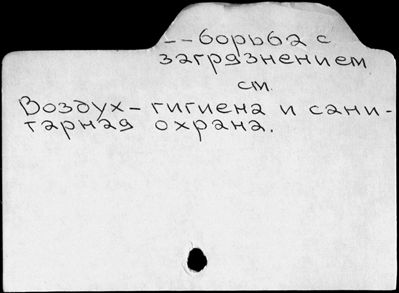 --борьба с
загрязнением
см.
Воздух-гигиена и сани-
тарная охрана.